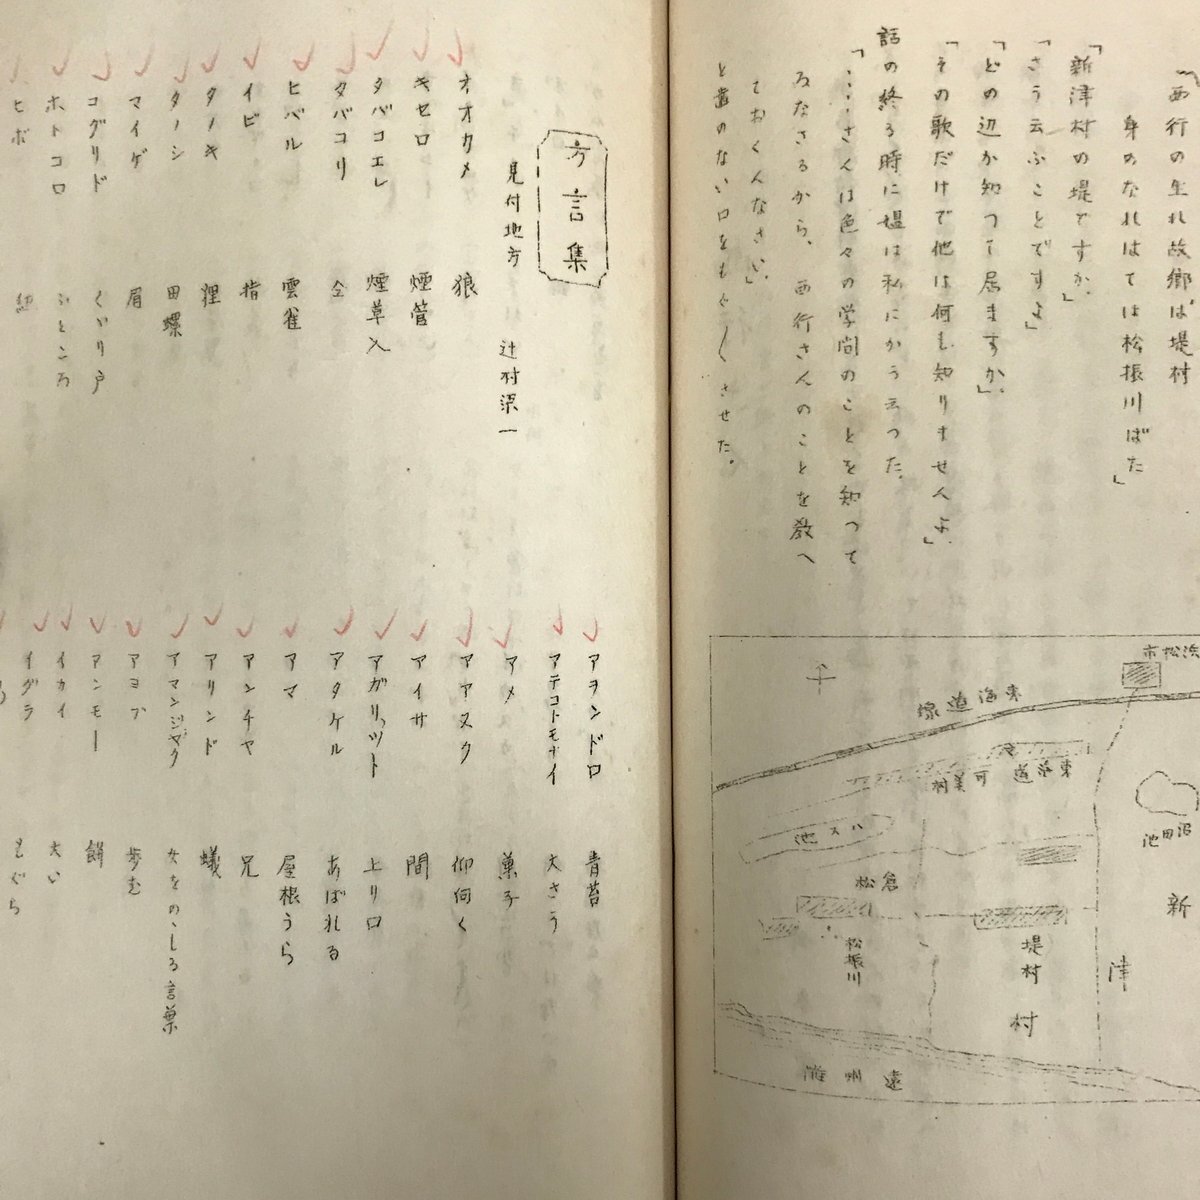 「西行の生れ故郷は堤村
身のなれはては松振川ばた」
「新津村の堤ですか」
「さう云ふことですよ」
「どの辺か知つて居ますか」
「その歌だけで他は何も知りませんよ」
話の終る時に媼は私にかう云つた。
「‥‥さんは色々の学問のことを知つて
ゐなさるから、西行さんのことを教へ
ておくんなさい」
と歯のない口をもぐ〱させた。
浜松市
東海道線
東海道
可美村
沼田池
ハス池
倉松
松振川
堤村
新津村
遠州灘
方言集
見付地方 辻村涙一
オオカメ 狼
キセロ 煙管
タバコエレ 煙草入
タバコリ 仝
ヒバル 雲雀
イビ 指
タノキ 狸
タノシ 田螺
マイゲ 眉
コグリド くゞり戸
ホトコロ ふところ
ヒボ 紐
アヲンドロ 青苔
アテコトモナイ 大さう
アメ 菓子
アアヌク 仰向く
アイサ 間
アガリット 上り口
アタケル あばれる
アマ 屋根うら
アンチヤ 兄
アリンド 蟻
アマンジヤク 女をのゝしる言葉
アヨブ 歩む
アンモー 餅
イカイ 大い
イグラ もぐら